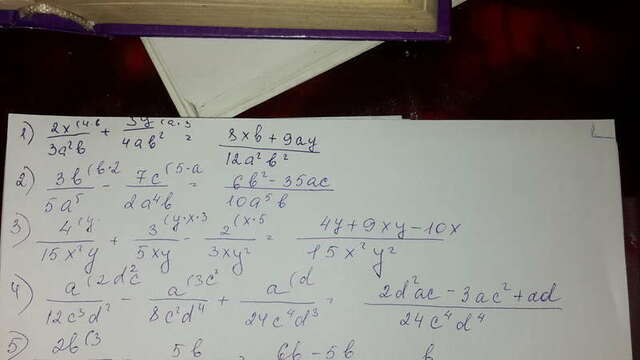 1) 2x(4·b / 3a²b + 3y(a·3 / 4ab² = 8xb + 9ay / 12a²b²
2) 3b(b·2 / 5a⁵ - 7c(5·a / 2a⁴b = 6b² - 35ac / 10a⁵b
3) 4(y· / 15x²y + 3(y·x·3 / 5xy - 2(x·5 / 3xy² = 4y + 9xy - 10x / 15x²y²
4) a(2dc² / 12c³d² - a(3c² / 8c²d⁴ + a(d / 24c⁴d³ = 2d²ac - 3ac² + ad / 24c⁴d⁴
5) 2b(3 5b = 6b - 5b b